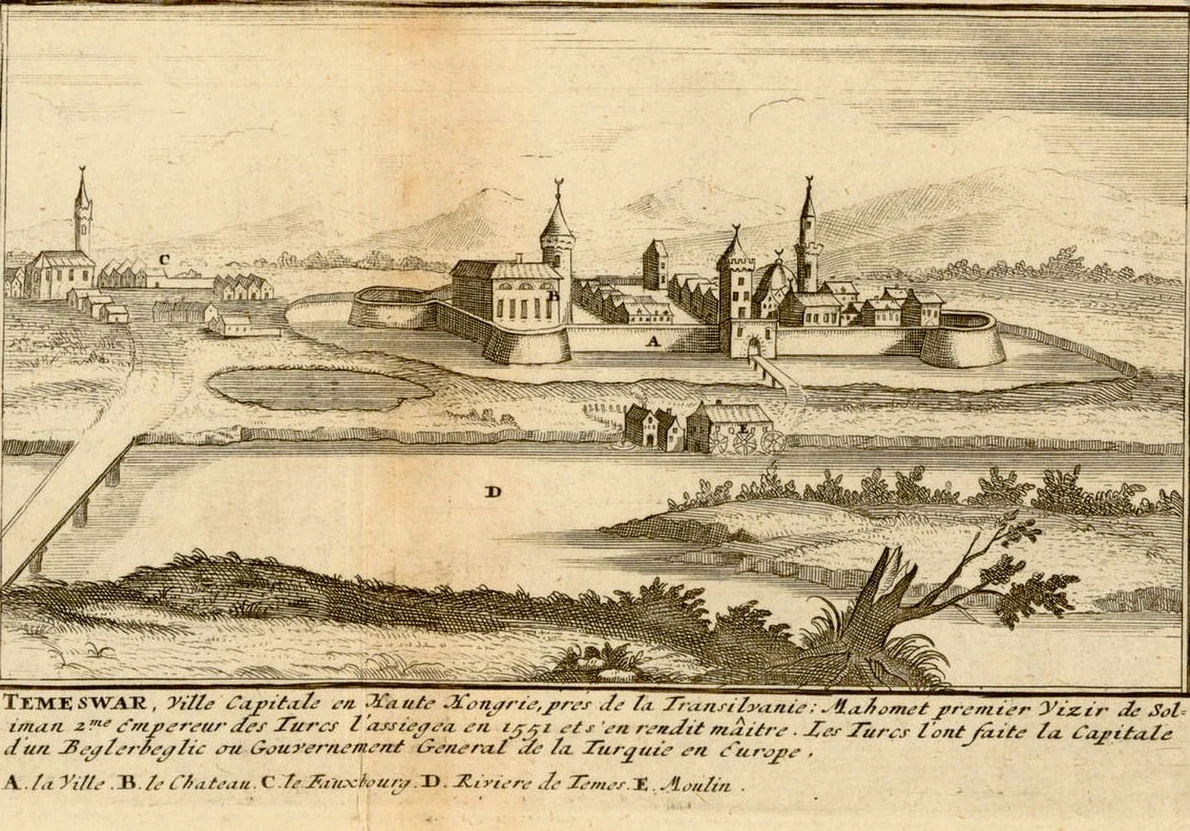 C
B
A
E
D
TEMESWAR, Ville Capitale en Haute Hongrie, prés de la Transilvanie: Mahomet premier Vizir de Sol-
iman 2me Empereur des Turcs l'assiegea en 1551 et s'en rendit mâitre. Les Turcs l'ont faite la Capitale
d'un Beglerbeglic ou Gouvernement General de la Turquie en Europe.
A. la Ville. B. le Chateau. C. le Fauxbourg. D. Riviere de Temes. E. Moulin.